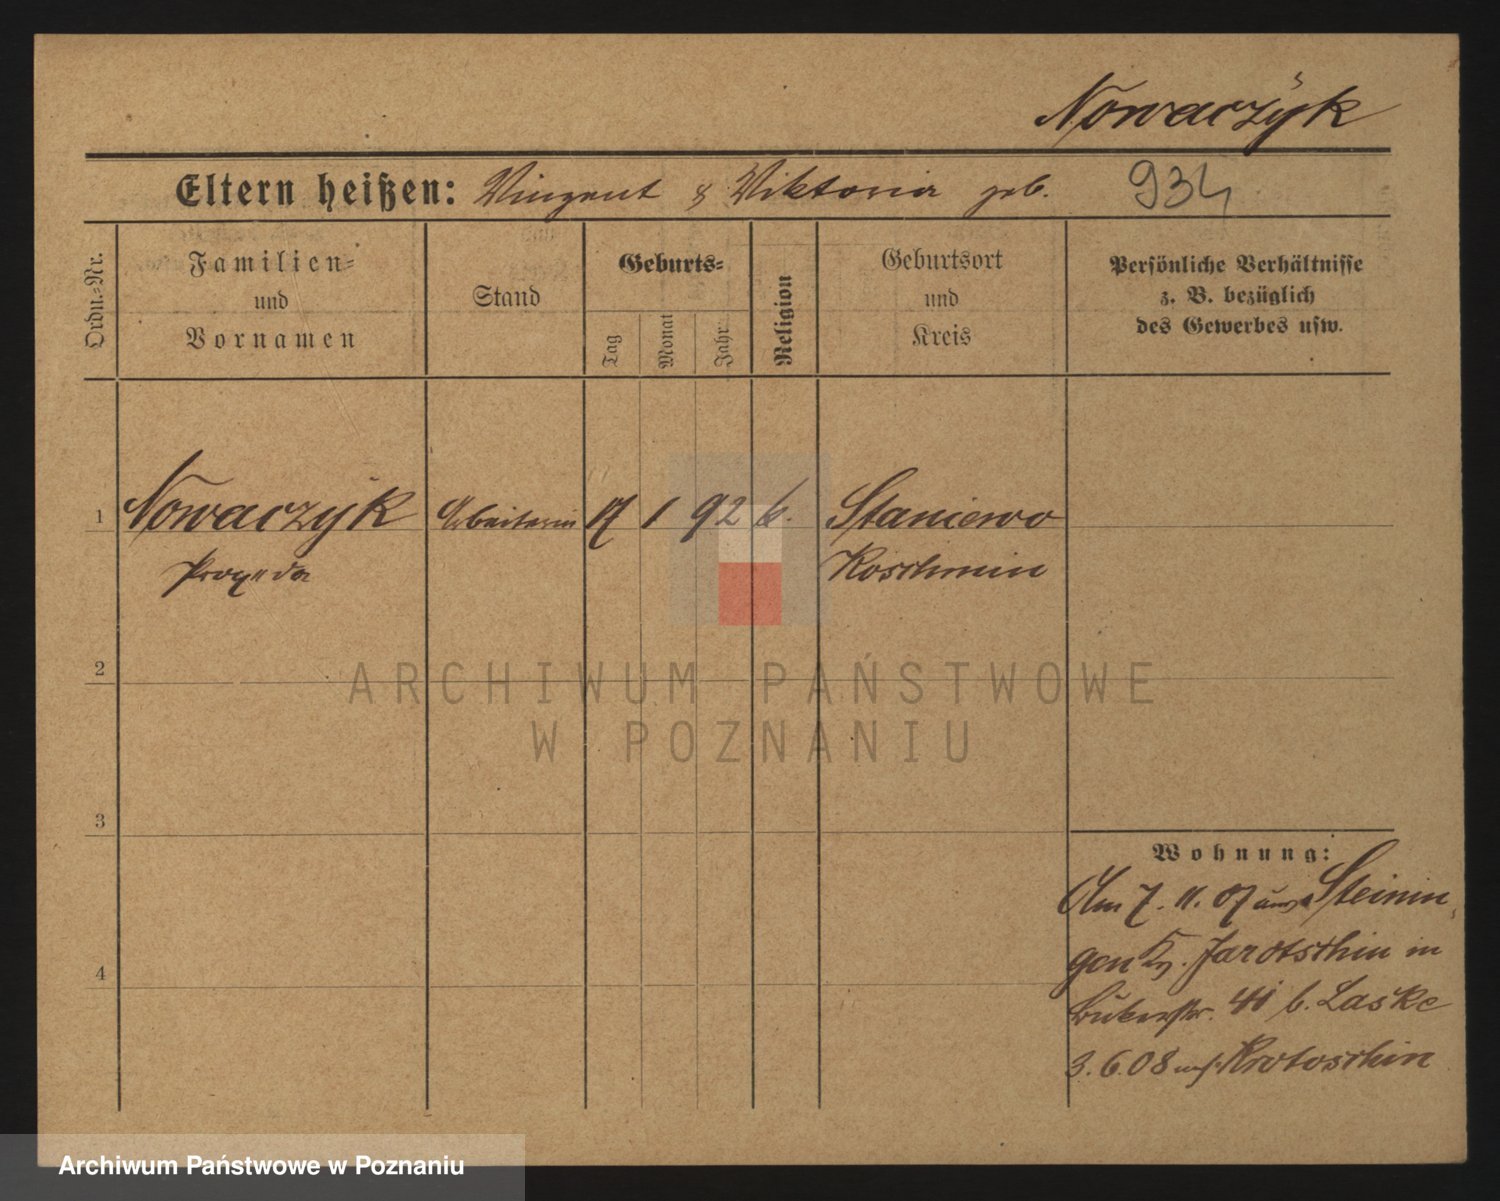 Nowaczÿk
Eltern heißen: Vinzent & Viktoria geb. 934
Ordn.=Nr.
Familien=
und
Vornamen
Stand
Geburts=
Tag
Monat
Jahr
Religion
Geburtsort
und
Kreis
Persönliche Verhältnisse
z. B. bezüglich
des Gewerbes usw.
1 Nowaczÿk Arbeiterin 17 1 92 k. Staniewo
Koschmin
2
ARCHIWUM PAŃSTWOWE
W POZNANIU
3
Wohnung:
Am 7. 11. 07 aus Steinin
gen Kr. Jarotschin in
41 b. Laske
3. 6. 08 nach Krotoschin
4
Archiwum Państwowe w Poznaniu